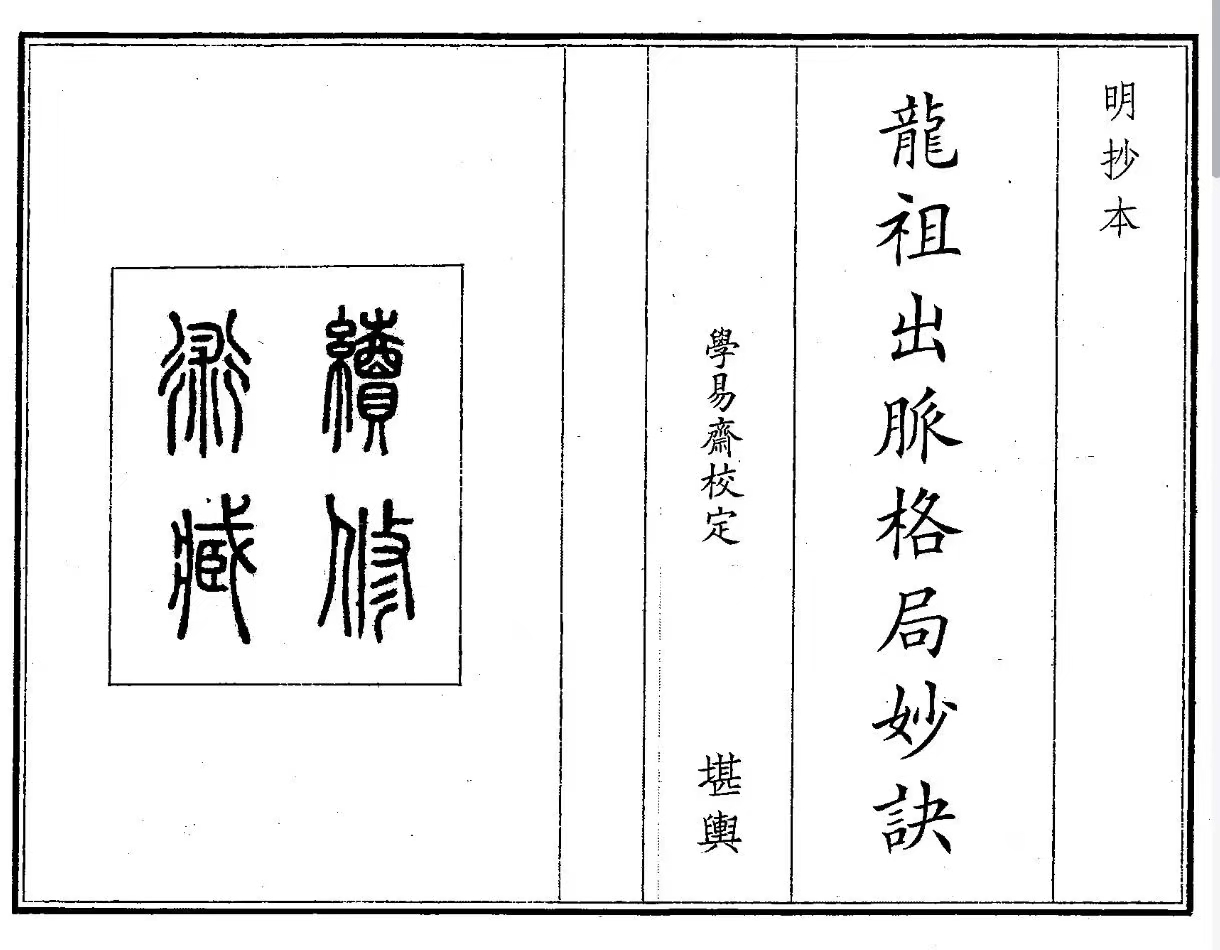 明抄本
龍祖出脈格局妙訣
學易齋校定
堪輿
續修
術藏